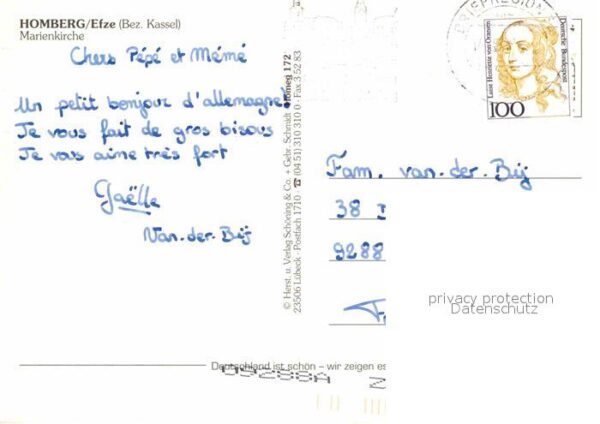 HOMBERG/Efze (Bez. Kassel)
Marienkirche
Chers Pépé et Mémé
Un petit bonjour d'allemagne
Je vous fait de gros bisous
Je vous aime très fort
Gaëlle
Van-der-Bij
© Herst. u. Verlag Schöning & Co. + Gebr. Schmidt
23506 Lübeck · Postfach 1710 · ☎ (04 51) 310 310 0 · Fax 3 52 83
172
BRIEFREGION
Luise Henriette von Oranien
Deutsche Bundespost
100
Fam. van-der-Bij
38
9288
privacy protection
Datenschutz
Deutschland ist schön – wir zeigen es
09288A